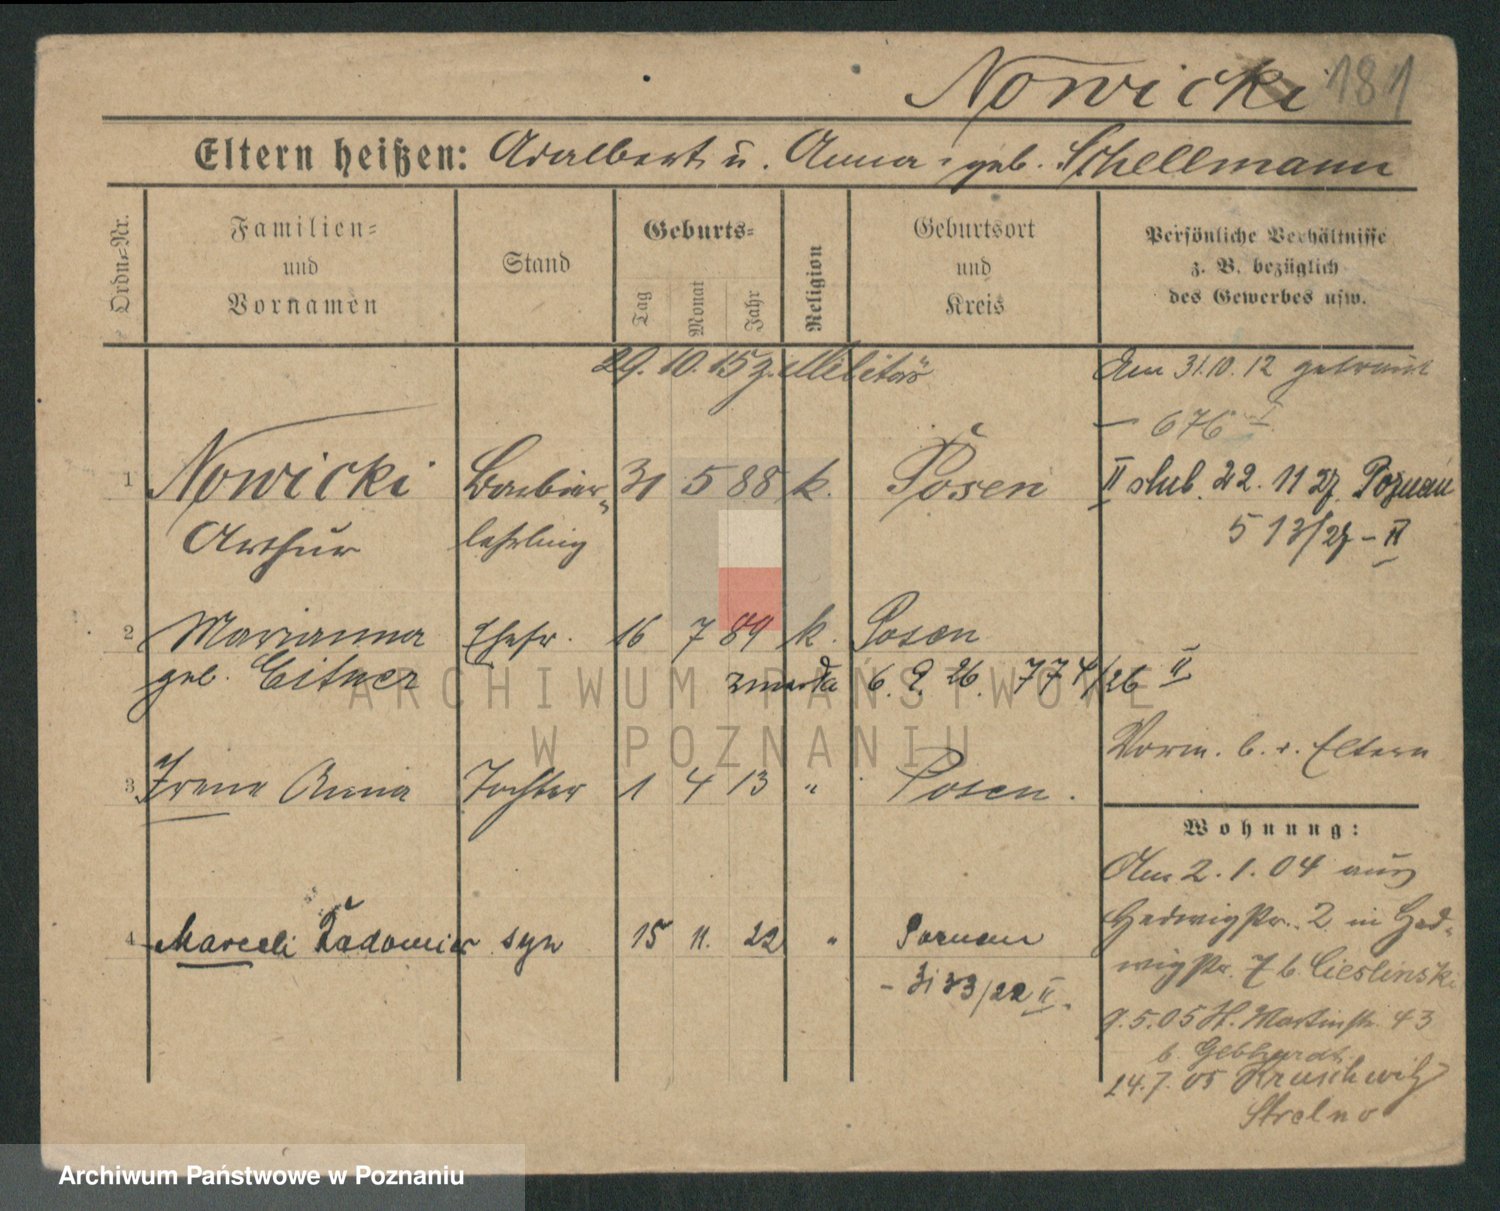 Nowicki 181
Eltern heißen: Adalbert u. Anna, geb. Schellmann
Ordn.-Nr.
Familien- und Vornamen
Stand
Geburts-
Tag Monat Jahr
Religion
Geburtsort und Kreis
Persönliche Verhältnisse
z. B. bezüglich
des Gewerbes usw.
29. 10. 15 z. Militär
Am 31.10.12 getraut
– 676 I
1 Nowicki Barbier- 31 5 88 k. Posen II slub. 22. 11 27. Poznań
Arthur lehrling
513/27 – II
2 Marianna Ehefr. 16 7 89 k. Posen
geb. Eitner zmarła 6. 9. 26. 774/26 II
Vorm. b. d. Eltern
3 Irene Anna Tochter 1 4 13 " Posen.
Wohnung:
Am 2.1.04 aus
Hedwigstr. 2 in Hed-
4 Marceli Radomier syn 15 11. 22 " Poznań
wigstr. 7 b. Cieslinski
– 3133/22 II.
9.5.05 St. Martinstr. 43
b. Gebhardt
24.7.05 Kruschwitz
Strelno
ARCHIWUM PAŃSTWOWE
W POZNANIU
Archiwum Państwowe w Poznaniu